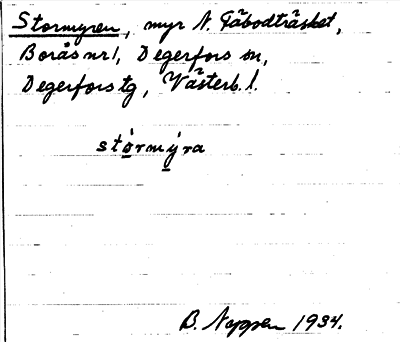 Stormyren, myr N. Fäbodträsket,
Borås nr 1, Degerfors sn,
Degerfors tg, Västerb. l.
stòrmýra
B. 1934.